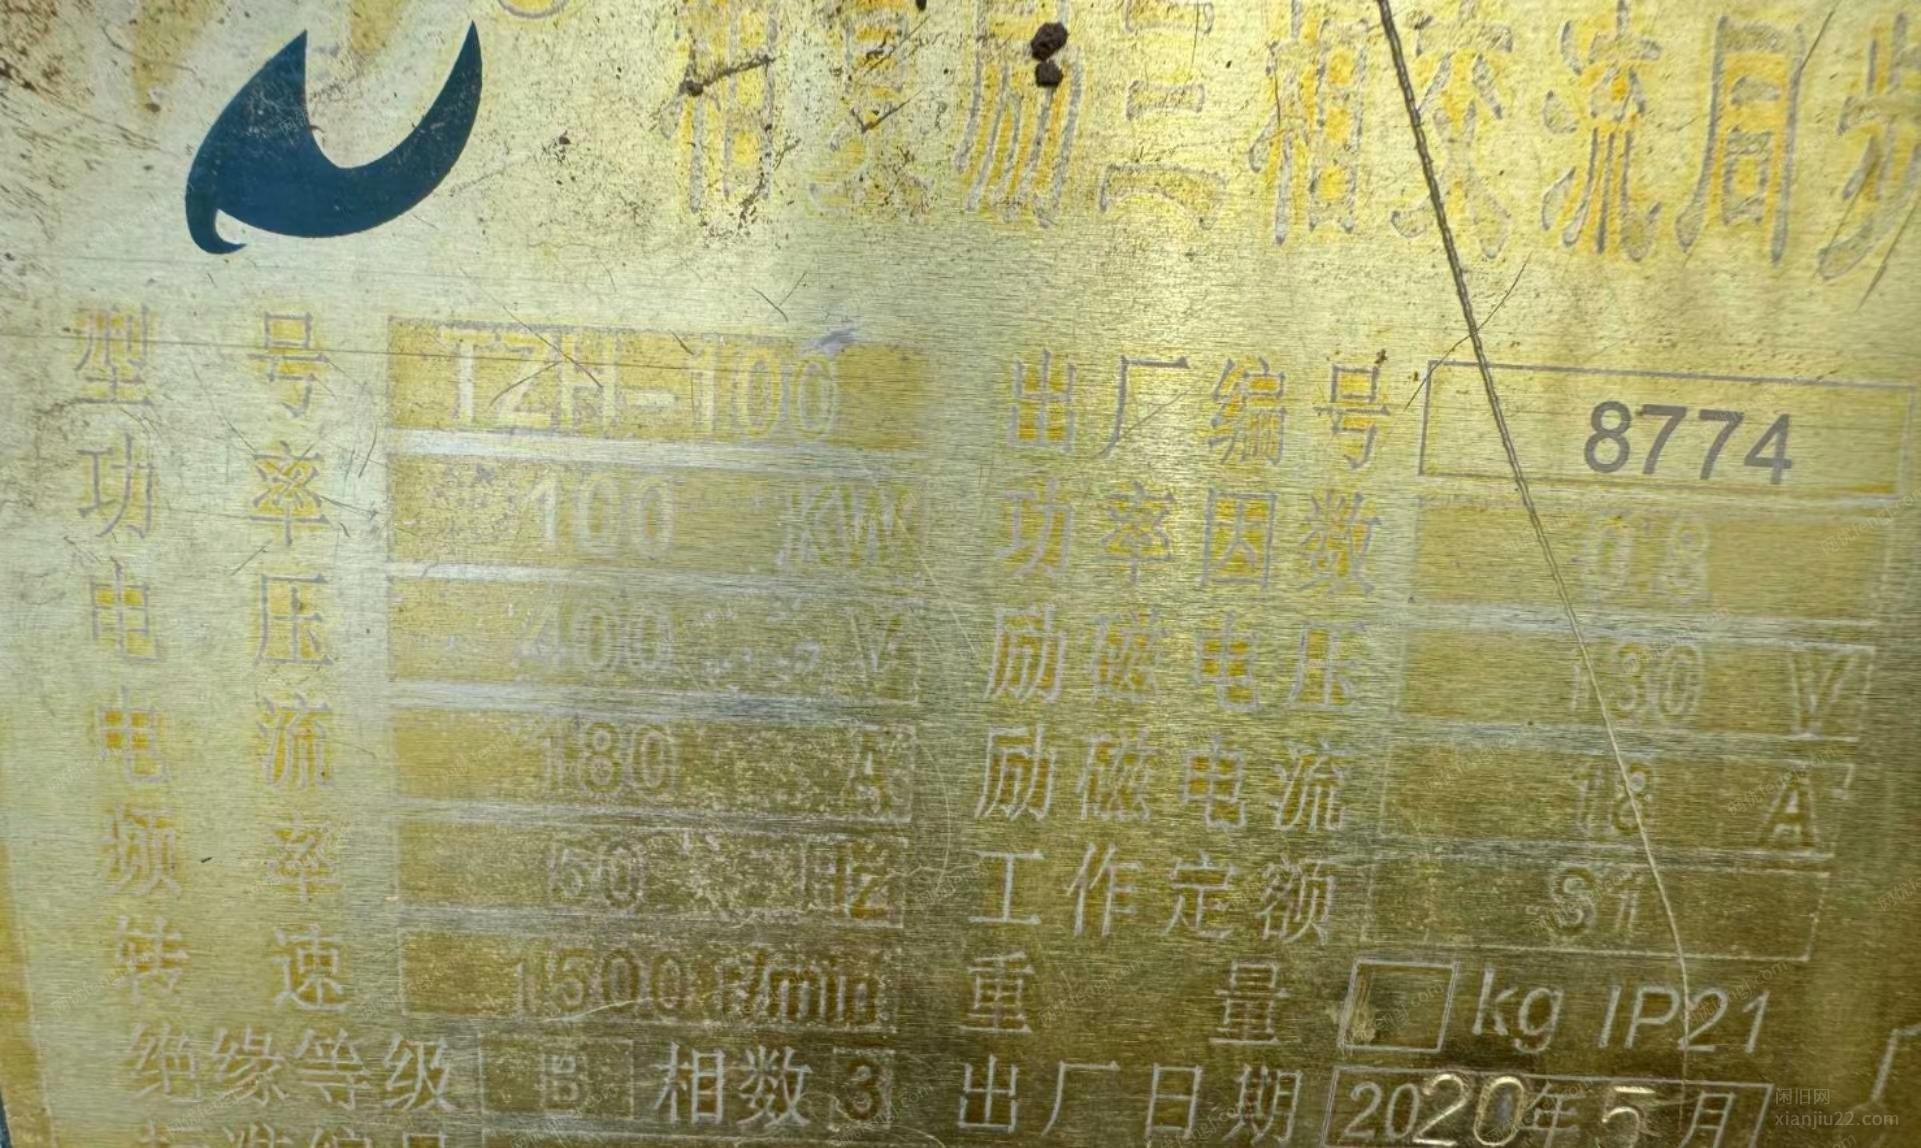 相复励三相交流同步
型号 TZH-100 出厂编号 8774
功率 100 KW 功率因数 0.8
电压 400 V 励磁电压 130 V
电流 180 A 励磁电流 18 A
频率 50 Hz 工作定额 S1
转速 1500 r/min 重量 kg IP21
绝缘等级 B 相数 3 出厂日期 2020年5月
标准编号
闲旧网
xianjiu22.com